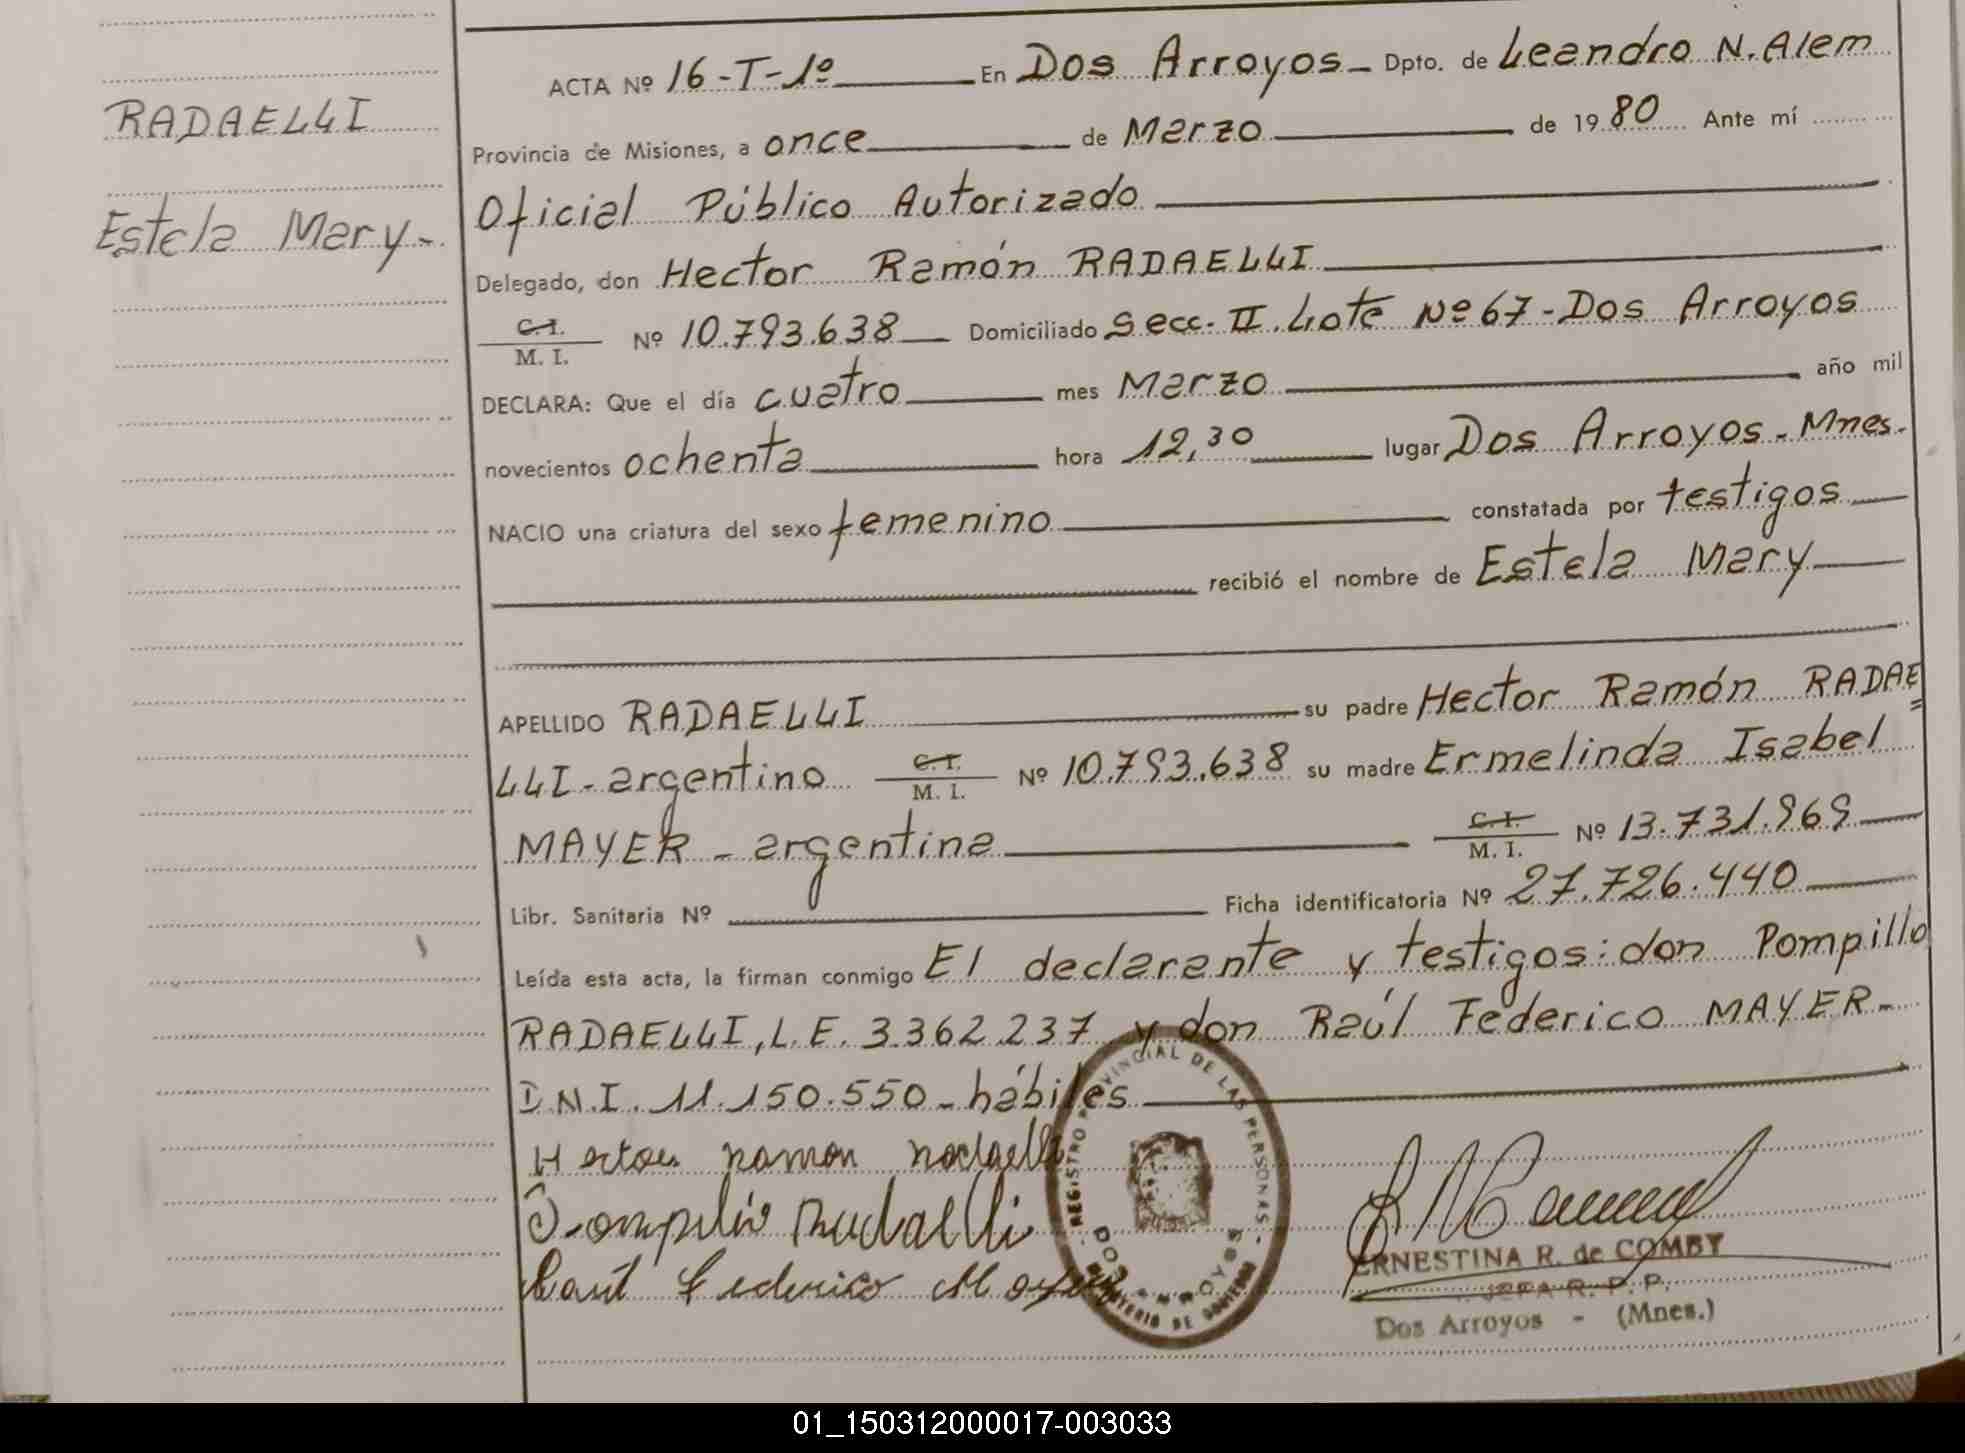 RADAELLI
Estela Mary-
ACTA Nº 16-T-1º En Dos Arroyos- Dpto. de Leandro N. Alem
Provincia de Misiones, a once de Marzo de 1980 Ante mí
Oficial Público Autorizado
Delegado, don Hector Ramón RADAELLI
C.I.
M. I. Nº 10.793.638 Domiciliado Secc. II. Lote Nº 67-Dos Arroyos
DECLARA: Que el día cuatro mes Marzo año mil
novecientos ochenta hora 12,30 lugar Dos Arroyos-Mnes.
NACIO una criatura del sexo femenino constatada por testigos
recibió el nombre de Estela Mary
APELLIDO RADAELLI su padre Hector Ramón RADAE=
LLI-argentino C.I. M. I. Nº 10.793.638 su madre Ermelinda Isabel
MAYER - argentina C.I. M. I. Nº 13.731.969
Libr. Sanitaria Nº Ficha identificatoria Nº 27.726.440
Leída esta acta, la firman conmigo El declarante y testigos: don Pompillo
RADAELLI, L.E. 3.362.237 y don Raúl Federico MAYER-
D.N.I. 11.150.550-hábiles
Hector Ramon Radaelli
Pompilio Radaelli
Raúl Federico Mayer
REGISTRO PROVINCIAL DE LAS PERSONAS
DOS ARROYOS
MINISTERIO DE GOBIERNO
ERNESTINA R. de COMBY
JEFA R. P. P.
Dos Arroyos - (Mnes.)
01_150312000017-003033